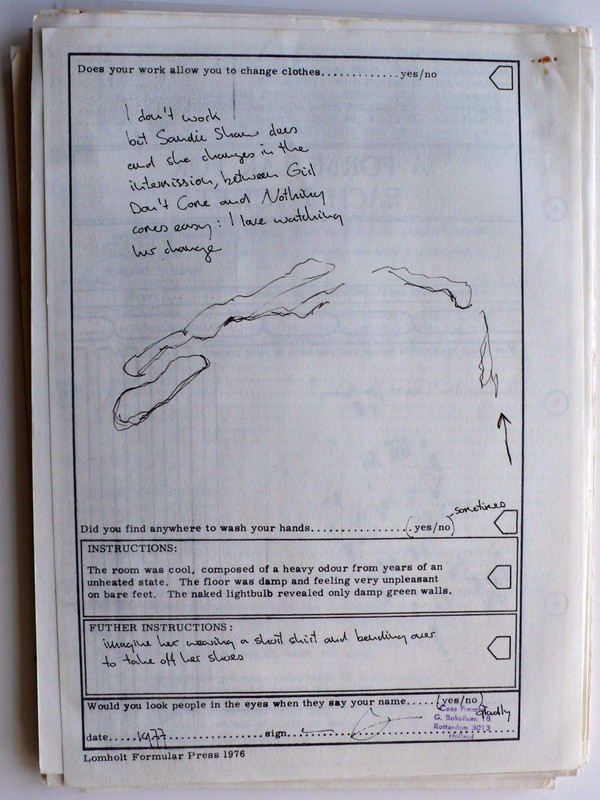 Does your work allow you to change clothes.............yes/no
I don't work
but Sandie Shaw does
and she changes in the
intermission, between Girl
Don't Come and Nothing
comes easy: I love watching
her change
sometimes
Did you find anywhere to wash your hands................(yes/no)
INSTRUCTIONS:
The room was cool, composed of a heavy odour from years of an
unheated state. The floor was damp and feeling very unpleasant
on bare feet. The naked lightbulb revealed only damp green walls.
FUTHER INSTRUCTIONS:
imagine her wearing a short skirt and bending over
to take off her shoes
Would you look people in the eyes when they say your name.....(yes/no)
gladly
Cees
G. Bokellaan 18
Rotterdam 3013
Holland
date.....1977................sign.
Lomholt Formular Press 1976